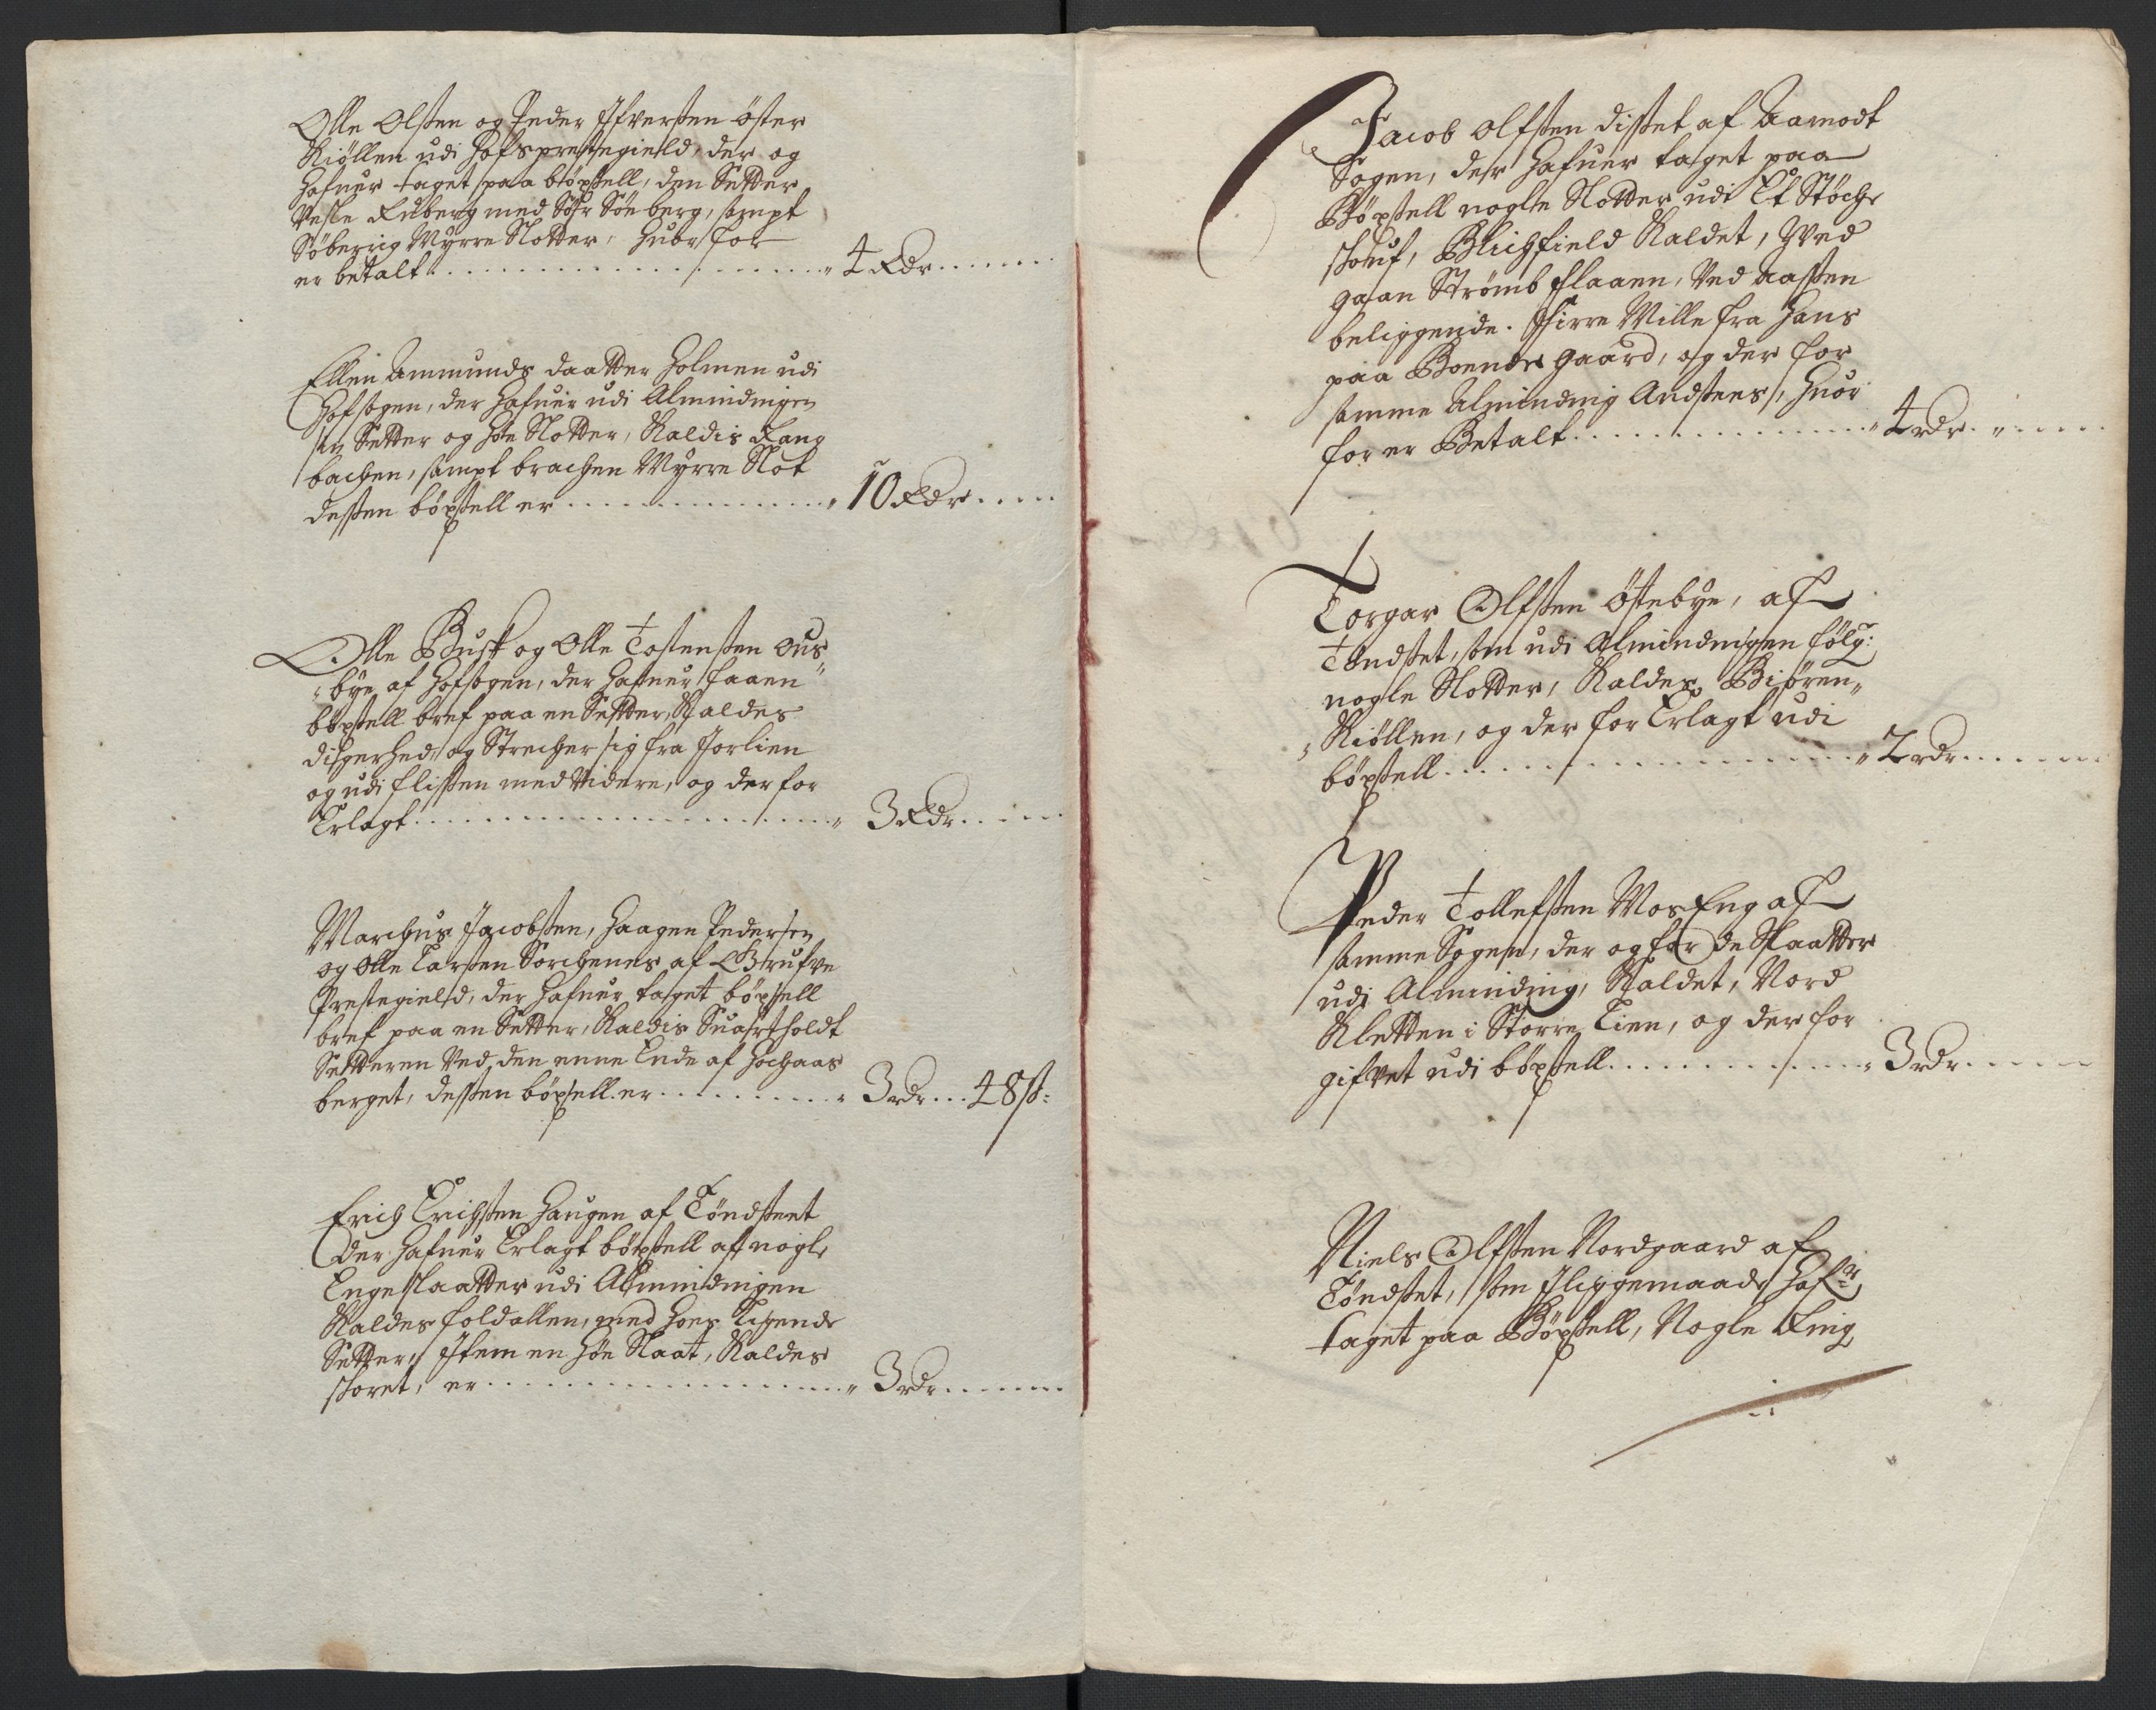 Olle Olsten og Peder Ifversten öster
Kiöllen udi Hofsprestegield, der og
Hafuer taget paa böxsell, den Setter
Vesle Ruberg med Söfr Sönberg, sampt
Söberrig Myrre Slotter, huor for
er betalt . . . 4 Rdr . . .
Ellin Ammunds daatter Holmen udi
Hofsogen, der Hafuer udi Almindingen
en Setter og Höe Slotter, Kaldis Lang
bachen, sampt brachen Myrre Slot
dessen böxsell er . . . 10 Rdr . . .
Olle Busk og Olle Tostensten Ous
bye af Hofsogen, der Hafuer faaen
böxsell bref paa en Setter, Kaldes
og Strecher sig fra Jorlien
og udi flissen med Videre, og der for
Erlagt . . . 3 Rdr . . .
Marchus Jacobsten, Haagen Pedersen
og Olle Larsen Sorchenes af Grufve
Prestegield, der Hafuer taget böxsell
bref paa en Setter, Kaldis Suartholdt
Setteren Ved den enne Ende af Hochaas
berget, dessen böxsell er . . . 3 rdr . . . 48 ß:
Erich Erichsten Haugen af Töndsett
der Hafuer Erlagt böxsell aff nogle
Engeslaatter udi Almindingen
Kaldes foldallen, med hoes Ligende
Setter, Item en Höe Slaat, Kaldes
skoret, er . . . 3 rdr . . .
Jacob Olfsten disset af Aamodt
Sogen, der Hafuer taget paa
Böxsell nogle Slotter udi Et Stöche
skouf, Blichfield Kaldet, Ved
gaan Strömb flaaen, Ved aassen
beliggende. Fiirre Mille fra Hans
paa Boende gaard, og der for
samme Alminding Andstees, huor
for er Betalt . . . 4 rdr . . .
Torgar Olfsten Östebye, af
Töndset, som udi Almindingen fölg:
nogle Slotter, Kaldes Biören
Kiöllen, og der for Erlagt udi
böxsell . . . 2 rdr . . .
Peder Tollefsten Mos Eng af
samme Sogen, der og for de Slaatter
udi Alminding, Kaldet, Nord
Kletten i Storre Lien, og der for
gifvet udi böxsell . . . 3 rdr . . .
Niels Olfsten Nordgaard af
Töndset, som Iliggemaade Hafr
taget paa Böxsell, Nogle Eng